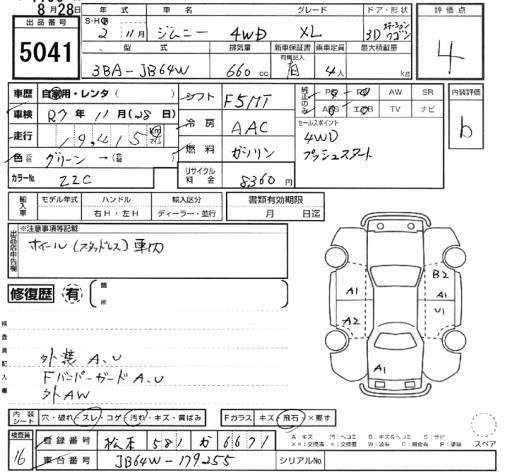 8月28日
出品番号
5041
年式
車名
グレード
ドア・形状
評価点
2 11月
ジムニー 4WD XL
3D ステーションワゴン
型式
排気量
新車保証書
乗車定員
最大積載量
3BA-JB64W
660 cc
有
4人
kg
4
車歴
自家用・レンタ(
シフト
F5MT
純正のみ
PS
PW
AW
SR
AB
エアB
TV
ナビ
内装評価
b
車検
R7年11月(28日)
冷房
AAC
セールスポイント
4WD
プッシュスタート
走行
19,415
色
グリーン
燃料
ガソリン
カラーNo.
22C
リサイクル料金
8360円
輸入車
モデル年式
ハンドル
輸入区分
右H・左H
ディーラー・並行
書類有効期限
月 日迄
出品店申告欄
※注意事項等記載
ホイール(スタッドレス)車内
修復歴
有
箇所
検査員記入欄
外装 A、U
Fバンパーガード A、U
外AW
B2
A1
U1
A2
A1
内装シート
穴・破れ・スレ・コゲ・汚れ・キズ・黄ばみ
Fガラス
キズ・飛石・×要す
スペア
検査員
16
登録番号
松本 581 か 6671
車台番号
JB64W-179255
シリアルNo.
A:キズ
U:ヘコミ
B:キズ&ヘコミ
S:サビ
X:交換要
W:波有
C:腐食有
P:塗装